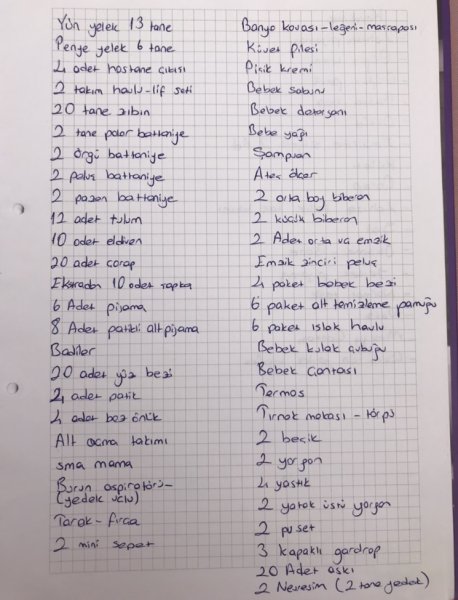 Yün yelek 13 tane
Penye yelek 6 tane
4 adet hastane çıkışı
2 takım havlu-lif seti
20 tane zıbın
2 tane polar battaniye
2 örgü battaniye
2 peluş battaniye
2 pazen battaniye
12 adet tulum
10 adet eldiven
20 adet çorap
10 adet şapka
6 Adet pijama
8 Adet patikli alt pijama
Badiler
20 adet yüz bezi
4 adet patik
4 adet bez önlük
Alt açma takımı
sma mama
Burun aspiratörü-
(yedek uclu)
Tarak-fırça
2 mini sepet
Banyo kovası-leğeni-maşrapası
Küvet filesi
Pişik kremi
Bebek sabunu
Bebek deterjanı
Bebe yağı
Şampuan
Ateş ölçer
2 orta boy biberon
2 küçük biberon
2 Adet orta ve emzik
Emzik zinciri peluş
4 paket bebek bezi
6 paket alt temizleme pamuğu
6 paket ıslak havlu
Bebek kulak çubuğu
Bebek çantası
Termos
Tırnak makası - törpü
2 beşik
2 yorgan
4 yastık
2 yatak üstü yorgan
2 puset
3 kapaklı gardrop
20 Adet askı
2 Nevresim (2 tane yedek)